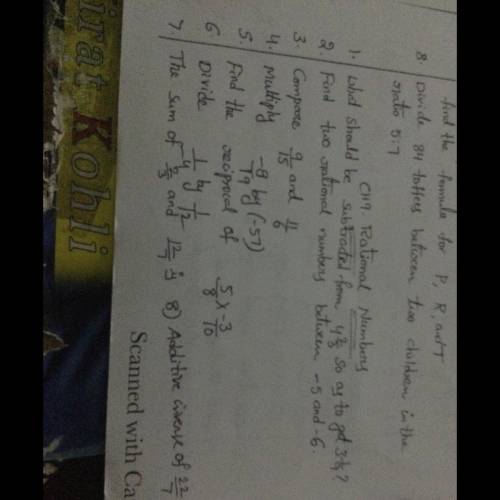 find the formula for P, R, and T
8. Divide 84 toffees between two children in the
ratio 5:7
CH 9. Rational Numbers
1. What should be subtracted from so as to get
2. Find two rational numbers between -5 and -6.
3. Compare 9/15 and 4/6
4. Multiply -8/19 by (-57)
5. Find the reciprocal of 5/8 x -3/10
6. Divide by
7. The sum of and is 8) Additive inverse of 22/7
Scanned with Ca
irat Kohli